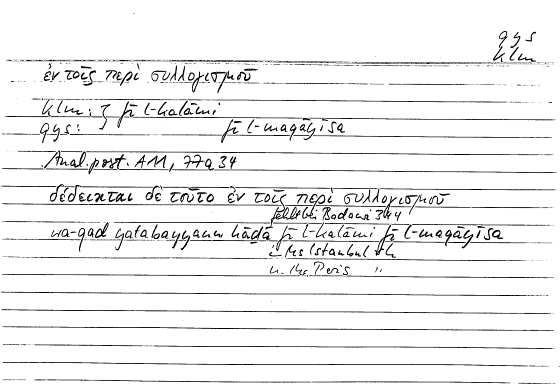 qys
klm
ἐν τοῖς περὶ συλλογισμοῦ
klm: } fī l-kalāmi
qys: fī l-maqāyīsa
Anal. post. A11, 77a34
δέδεικται δὲ τοῦτο ἐν τοῖς περὶ συλλογισμοῦ
fehlt bei Badawi 344
wa-qad yatabayyanu hāḏā fī l-kalāmi fī l-maqāyīsa
i. Ms Istanbul
u. Ms Paris "